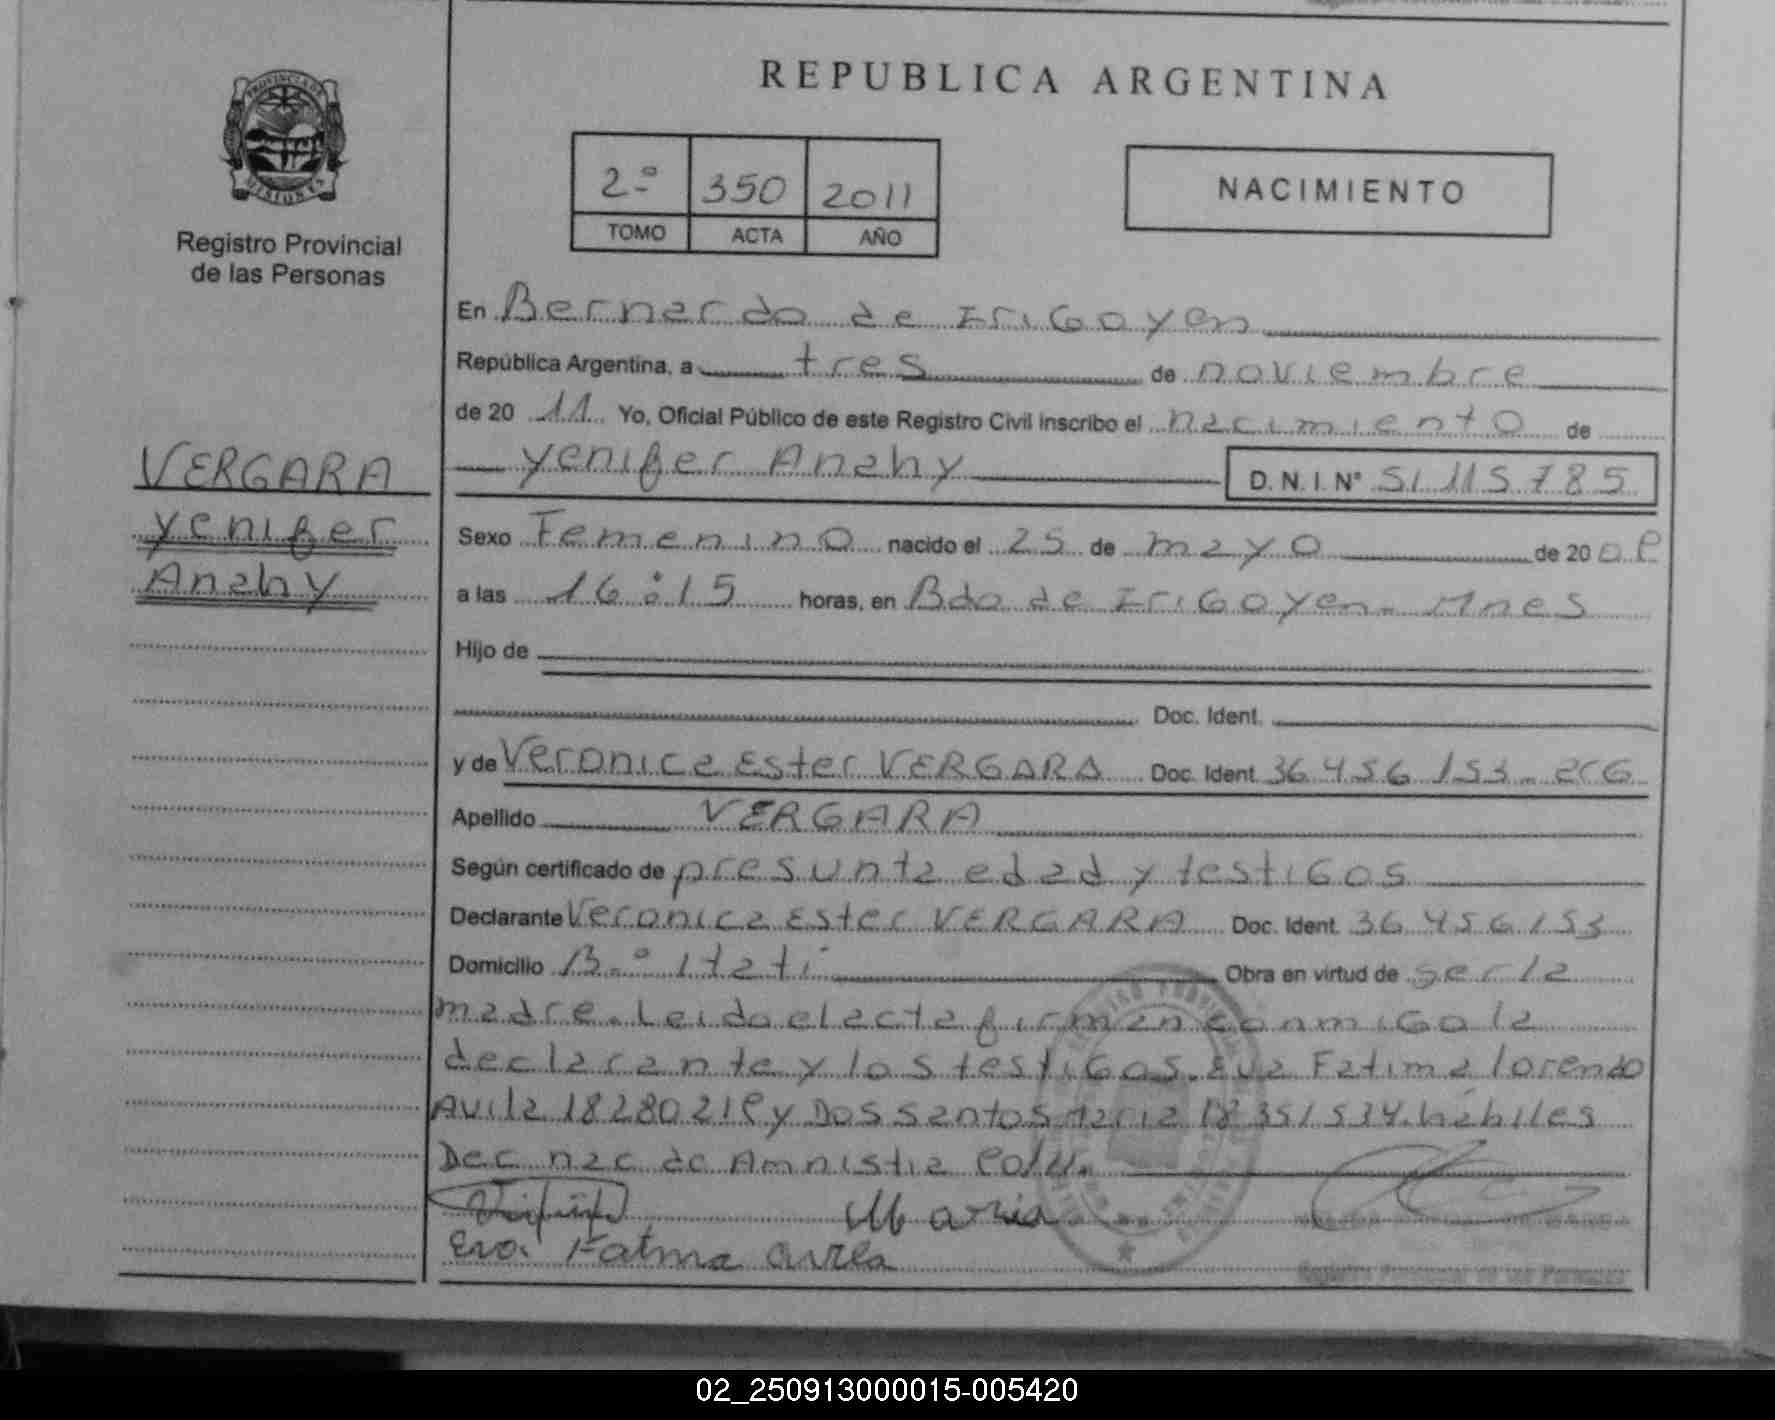 REPUBLICA ARGENTINA
PROVINCIA DE
MISIONES
Registro Provincial
de las Personas
2º 350 2011
TOMO ACTA AÑO
NACIMIENTO
En Bernardo de Irigoyen
República Argentina, a tres de noviembre
de 20 11 Yo, Oficial Público de este Registro Civil inscribo el nacimiento de
yenifer Anahy D.N.I. Nº 51 115 785
VERGARA
yenifer
Anahy
Sexo Femenino nacido el 25 de mayo de 20
a las 16:15 horas, en Bdo de Irigoyen. Mnes
Hijo de
Doc. Ident.
y de Veronica Ester VERGARA Doc. Ident. 36 456 153 - arG
Apellido VERGARA
Según certificado de presunta edad y testiGos
Declarante Veronica Ester VERGARA Doc. Ident. 36 456 153
Domicilio B.º Itati Obra en virtud de ser la
madre. Leida el acta firman conmiGo la
declarante y los testiGos. Eva Fatima lorendo
Avila y Dos santos Maria 18 351 534. hábiles
Dec nac de Amnistia
Maria
Eva Fatma avila
02_250913000015-005420